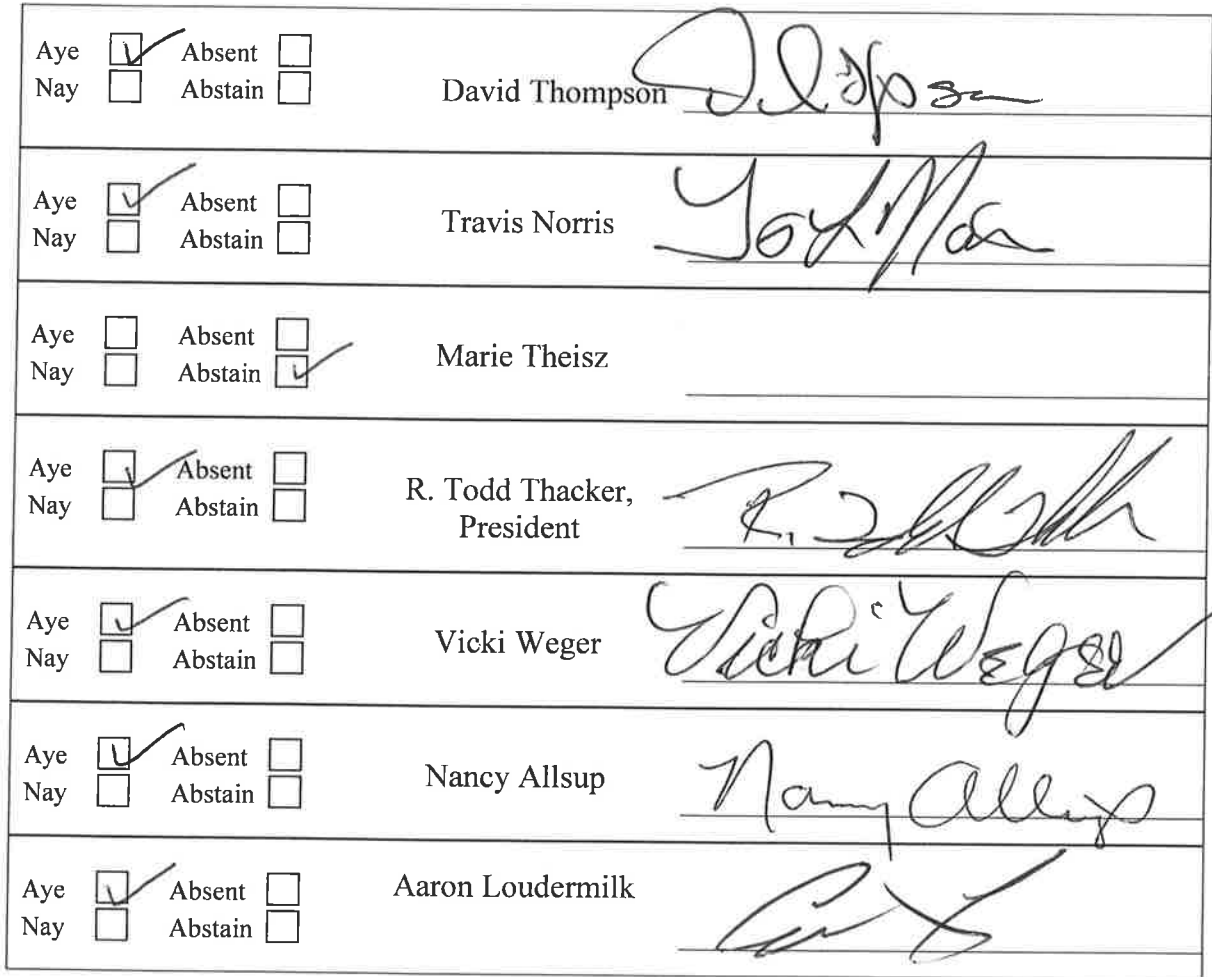 Aye ☑ Absent ☐
Nay ☐ Abstain ☐
David Thompson
Aye ☑ Absent ☐
Nay ☐ Abstain ☐
Travis Norris
Aye ☐ Absent ☐
Nay ☐ Abstain ☑
Marie Theisz
Aye ☑ Absent ☐
Nay ☐ Abstain ☐
R. Todd Thacker,
President
Aye ☑ Absent ☐
Nay ☐ Abstain ☐
Vicki Weger Vicki Weger
Aye ☑ Absent ☐
Nay ☐ Abstain ☐
Nancy Allsup Nancy Allsup
Aye ☑ Absent ☐
Nay ☐ Abstain ☐
Aaron Loudermilk